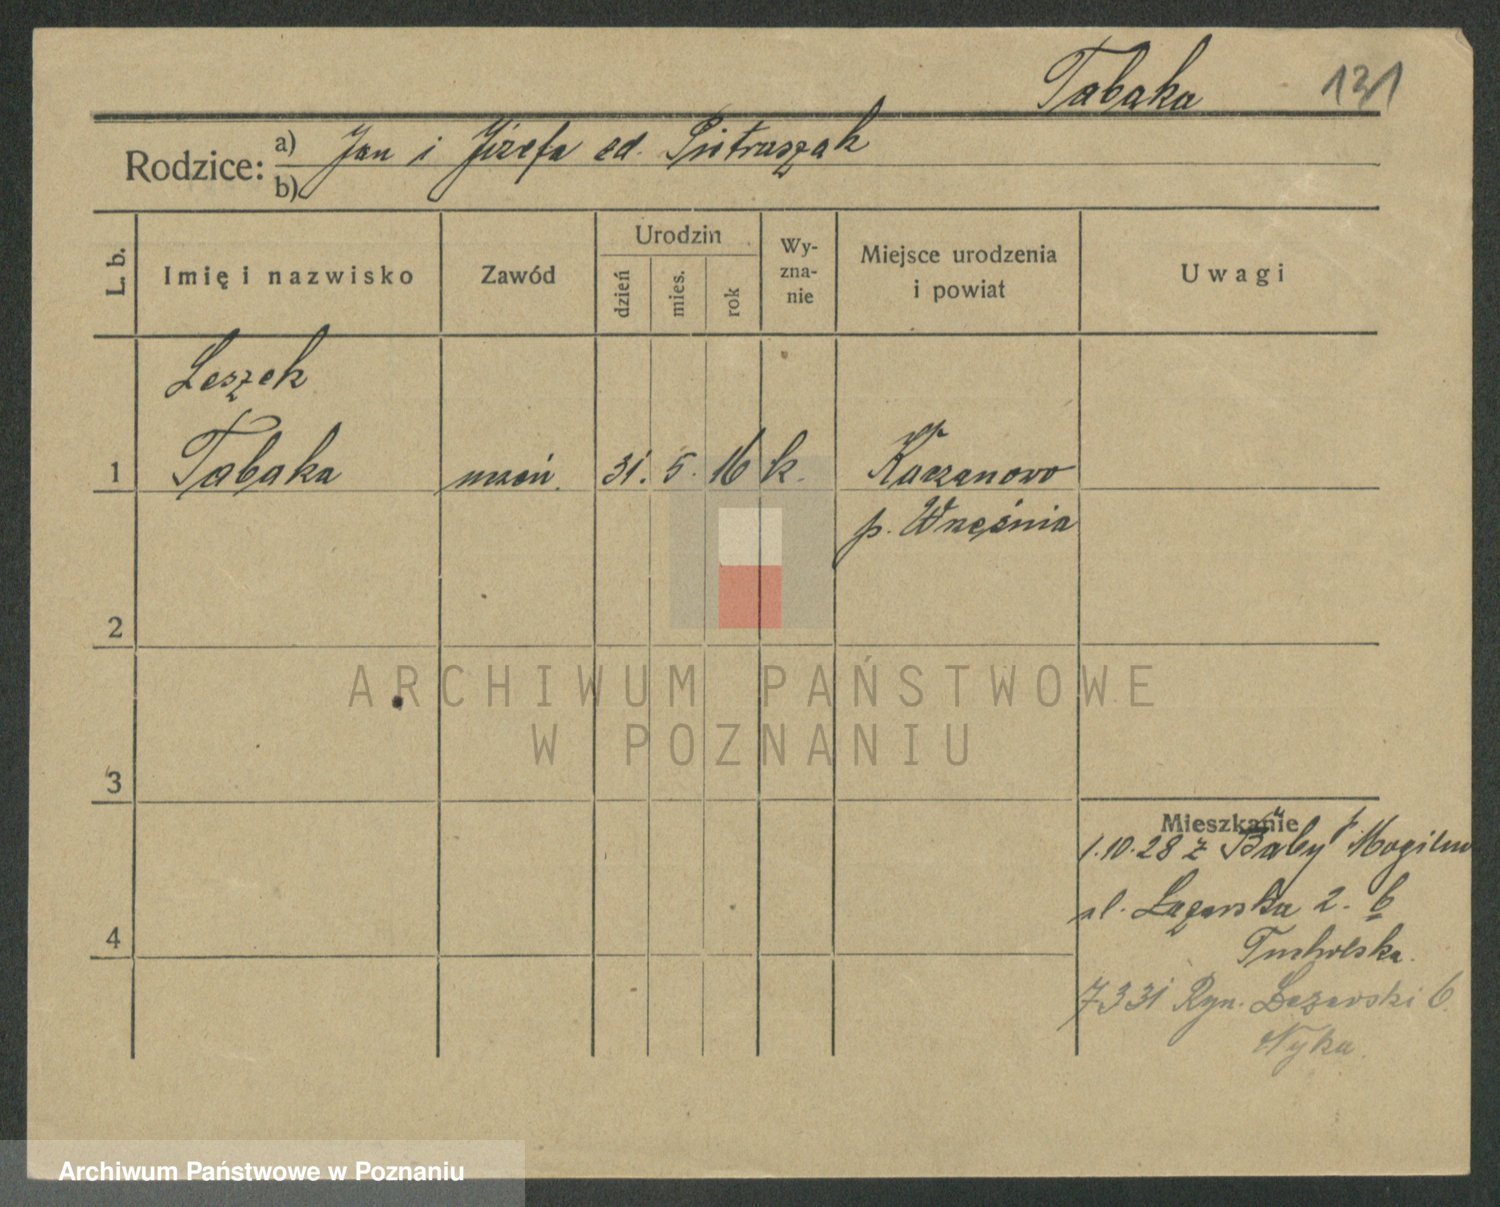 Tabaka 131
Rodzice: a) Jan i Józefa zd. Pietraszak
b)
L. b. Imię i nazwisko Zawód Urodzin dzień mies. rok Wyznanie Miejsce urodzenia i powiat Uwagi
Leszek
1 Tabaka uczeń. 31. 5. 16 k. Kaczanowo
p. Września
2
ARCHIWUM PAŃSTWOWE
W POZNANIU
3
Mieszkanie
1.10.28 z Baby p. Mogilno
ul. Łazarska 2. 6
4
Tucholska.
7 3 31 Ryn. Łazarski 6.
Nyka.
Archiwum Państwowe w Poznaniu